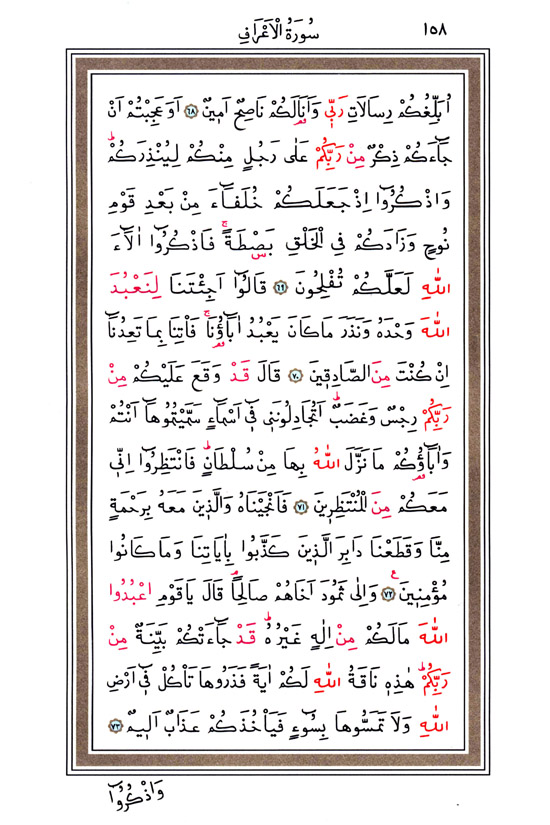 سُورَةُ الْاَعْرَافِ ١٥٨
اُبَلِّغُكُمْ رِسَالَاتِ رَبّ۪ي وَاَنَا۬ لَكُمْ نَاصِحٌ اَم۪ينٌ ﴿٦٨﴾ اَوَعَجِبْتُمْ اَنْ
جَٓاءَكُمْ ذِكْرٌ مِنْ رَبِّكُمْ عَلٰى رَجُلٍ مِنْكُمْ لِيُنْذِرَكُمْۜ
وَاذْكُرُٓوا اِذْ جَعَلَكُمْ خُلَفَٓاءَ مِنْ بَعْدِ قَوْمِ
نُوحٍ وَزَادَكُمْ فِي الْخَلْقِ بَصْۣطَةًۚ فَاذْكُرُٓوا اٰلَٓاءَ
اللّٰهِ لَعَلَّكُمْ تُفْلِحُونَ ﴿٦٩﴾ قَالُٓوا اَجِئْتَنَا لِنَعْبُدَ
اللّٰهَ وَحْدَهُ وَنَذَرَ مَا كَانَ يَعْبُدُ اٰبَٓاؤُ۬نَاۚ فَأْتِنَا بِمَا تَعِدُنَٓا
اِنْ كُنْتَ مِنَ الصَّادِق۪ينَ ﴿٧٠﴾ قَالَ قَدْ وَقَعَ عَلَيْكُمْ مِنْ
رَبِّكُمْ رِجْسٌ وَغَضَبٌۜ اَتُجَادِلُونَن۪ي ف۪ٓي اَسْمَٓاءٍ سَمَّيْتُمُوهَٓا اَنْتُمْ
وَاٰبَٓاؤُ۬كُمْ مَا نَزَّلَ اللّٰهُ بِهَا مِنْ سُلْطَانٍۜ فَانْتَظِرُٓوا اِنّ۪ي
مَعَكُمْ مِنَ الْمُنْتَظِر۪ينَ ﴿٧١﴾ فَاَنْجَيْنَاهُ وَالَّذ۪ينَ مَعَهُ بِرَحْمَةٍ
مِنَّا وَقَطَعْنَا دَابِرَ الَّذ۪ينَ كَذَّبُوا بِاٰيَاتِنَا وَمَا كَانُوا
مُؤْمِن۪ينَ۟ ﴿٧٢﴾ وَاِلٰى ثَمُودَ اَخَاهُمْ صَالِحًاۢ قَالَ يَا قَوْمِ اعْبُدُوا
اللّٰهَ مَا لَكُمْ مِنْ اِلٰهٍ غَيْرُهُۜ قَدْ جَٓاءَتْكُمْ بَيِّنَةٌ مِنْ
رَبِّكُمْۜ هٰذِه۪ نَاقَةُ اللّٰهِ لَكُمْ اٰيَةً فَذَرُوهَا تَأْكُلْ ف۪ٓي اَرْضِ
اللّٰهِ وَلَا تَمَسُّوهَا بِسُٓوءٍ فَيَأْخُذَكُمْ عَذَابٌ اَل۪يمٌ ﴿٧٣﴾
وَاذْكُرُٓوا